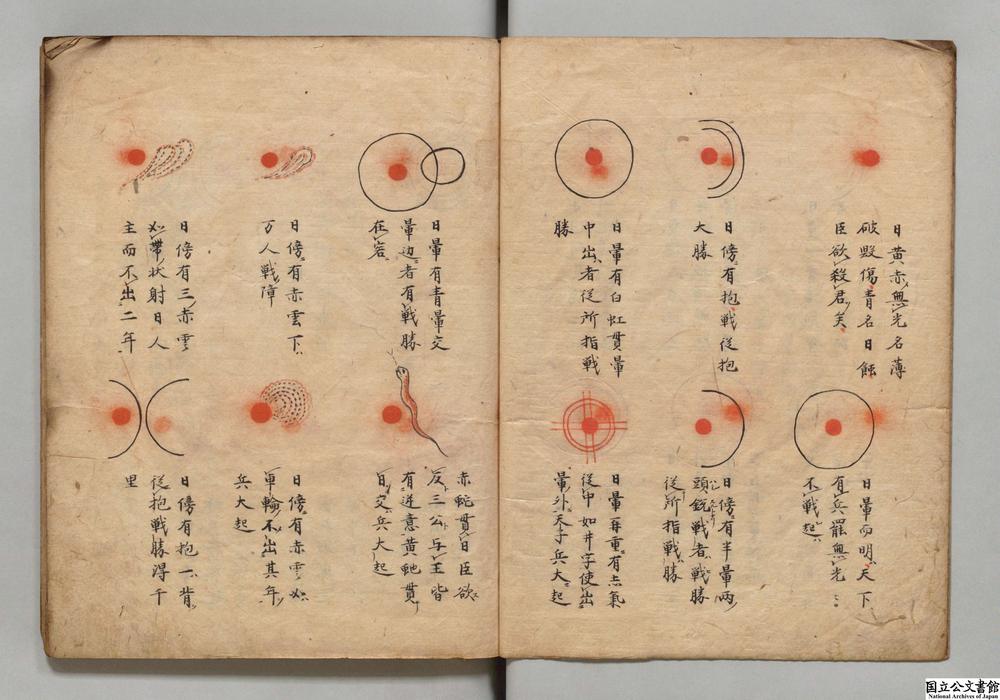 日黄赤無光名薄
破毀傷青名日蝕
臣欲殺君矣
日傍有抱戰從抱
大勝
日暈有白虹貫暈
中出者從所指戰
勝
日暈而明天下
有兵罷無光〻
不戰起
日傍有半暈兩
頭銳戰者戰勝
從所指戰勝
日暈再重有
氣
從中如井字使出
暈外天子兵大起
日暈有青暈交
暈邉者有戰勝
在
日傍有赤雲下
万人戰障
日傍有三赤雲
如帶状射日人
主而不出二年
赤蛇貫日臣欲
反三公与王皆
有逆意黄虵貫
日交兵大起
日傍有赤雲如
車輪不出其年
兵大起
日傍有抱一背
從抱戰勝得千
里
国立公文書館
National Archives of Japan